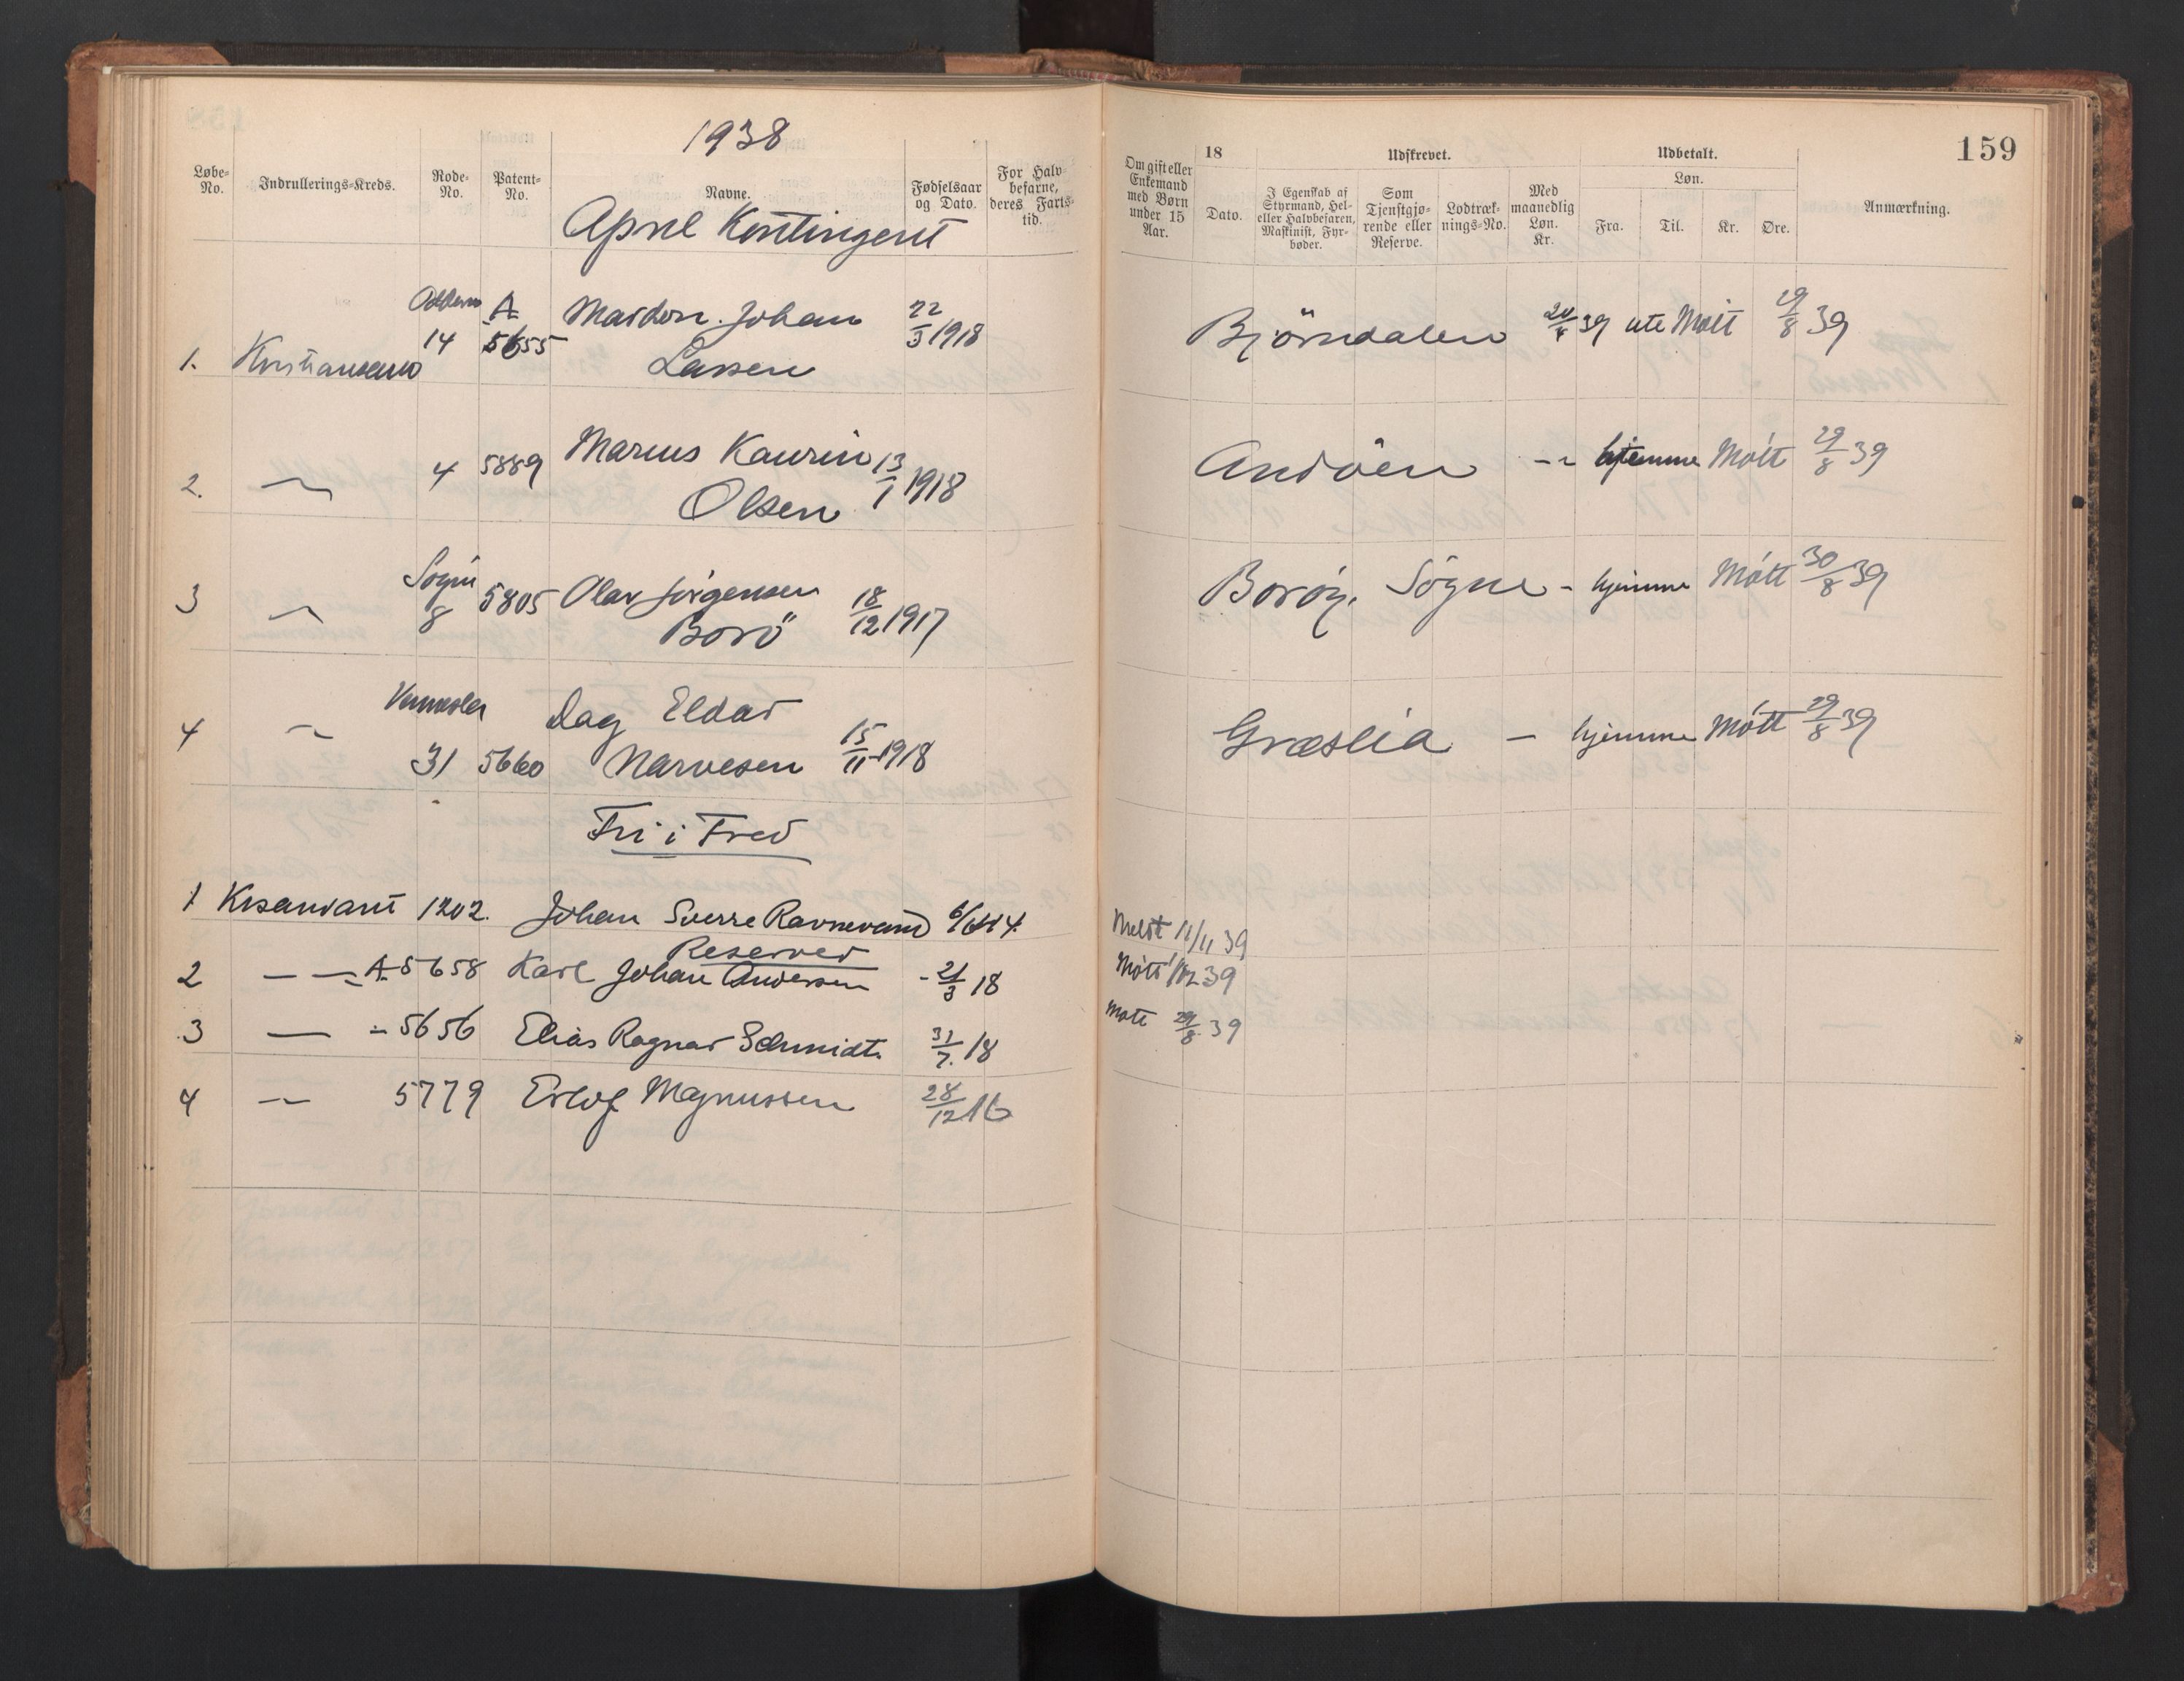 1938
159
Løbe-No. Indrullerings-Kreds. Rode-No. Patent-No. Navne. Fødselsaar og Dato. For Halvbefarne, deres Farts-tid.
Om gift eller Enkemand med Børn under 15 Aar. 18 Dato. Udskrevet. J Egenskab af Styrmand, Hel- eller Halvbefaren, Maskinist, Fyrbøder. Som Tjenstgjørende eller Reserve. Lodtræknings-No. Med maanedlig Løn. Kr. Udbetalt. Løn. Fra. Til. Kr. Øre. Anmærkning.
April Kontingent
Oddernes A Mardon Johan 22
1. Kristiansand 14 5655 Larsen 3 1918 Bjørndalen 39 ute Møtt 29/8 39
2. 4 5889 Marius Kaurin Olsen 13/1 1918 Andöen hjemme Møtt 29/8 39
3 Søgne 8 5805 Olav Jörgensen Borö 18/12 1917 Boröy, Sögne - hjemme Møtt 30/8 39
4 Vennesla 31 5660 Dag Eldar Narvesen 15/11 1918 Græslia — hjemme Møtt 29/8 39
Fri i Fred
1 Krsand 1202. Johan Sverre Ravnevand Meldt 11/11 39
Reserver
2 — A-5658 Karl Johan Andersen - 21/3 18 Møtt 39
3 — - 5656 Elias Ragnar Schmidt. 31/7. 18 Møtt 29/8 39
4 — 5779 Erlof Magnussen 28/12 16